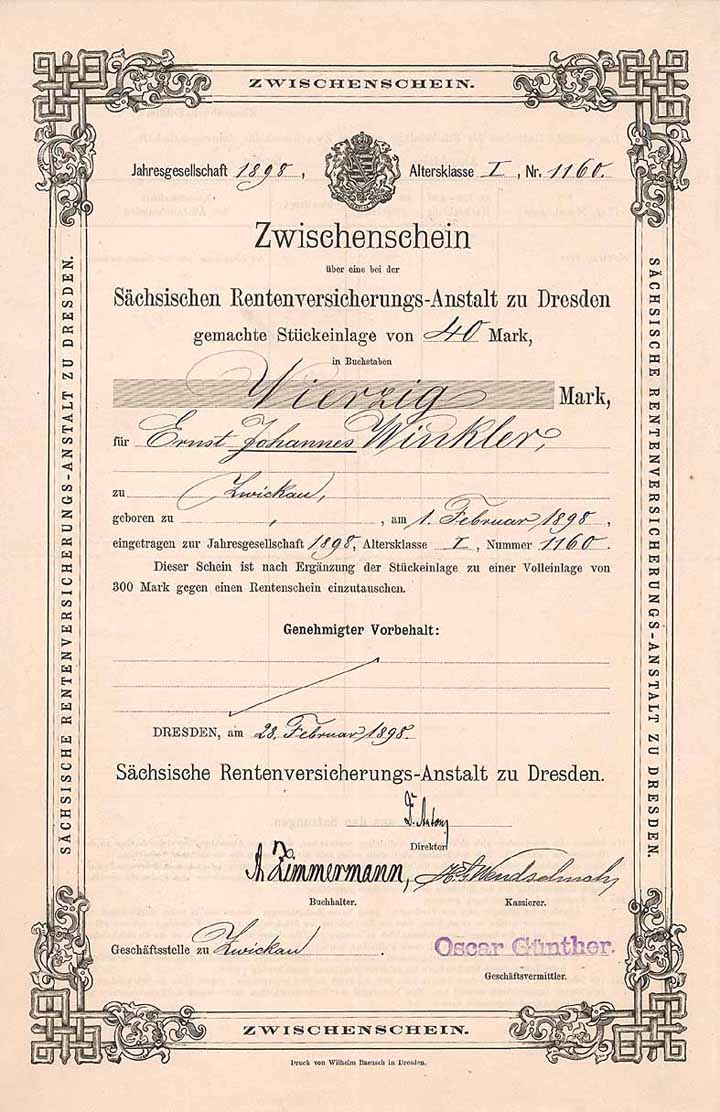 ZWISCHENSCHEIN.
Jahresgesellschaft 1898, Altersklasse I, Nr. 1160.
Zwischenschein
über eine bei der
Sächsischen Rentenversicherungs-Anstalt zu Dresden
gemachte Stückeinlage von 40 Mark,
in Buchstaben
Vierzig Mark,
für Ernst Johannes Winkler,
zu Zwickau,
geboren zu , , am 1. Februar 1898,
eingetragen zur Jahresgesellschaft 1898, Altersklasse I, Nummer 1160.
Dieser Schein ist nach Ergänzung der Stückeinlage zu einer Volleinlage von
300 Mark gegen einen Rentenschein einzutauschen.
Genehmigter Vorbehalt:
DRESDEN, am 28. Februar 1898.
Sächsische Rentenversicherungs-Anstalt zu Dresden.
Direktor
A Zimmermann,
Buchhalter. Kassierer.
Geschäftsstelle zu Zwickau. Oscar Günther.
Geschäftsvermittler.
ZWISCHENSCHEIN.
Druck von Wilhelm Baensch in Dresden.
SÄCHSISCHE RENTENVERSICHERUNGS-ANSTALT ZU DRESDEN.
SÄCHSISCHE RENTENVERSICHERUNGS-ANSTALT ZU DRESDEN.